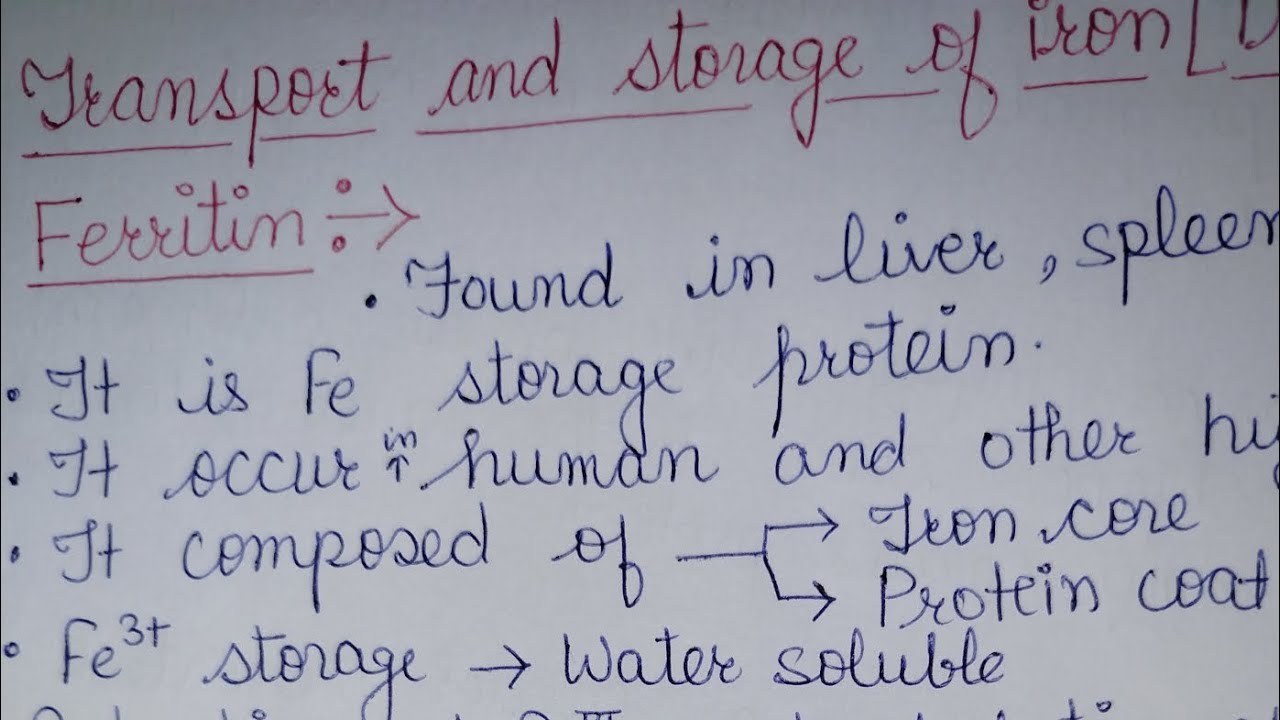 Transport and storage of iron [
Ferritin ÷>
• Found in liver, spleen
• It is Fe storage protein.
• It occur in human and other
• It composed of → Iron core
→ Protein coat
• Fe3+ storage → Water soluble